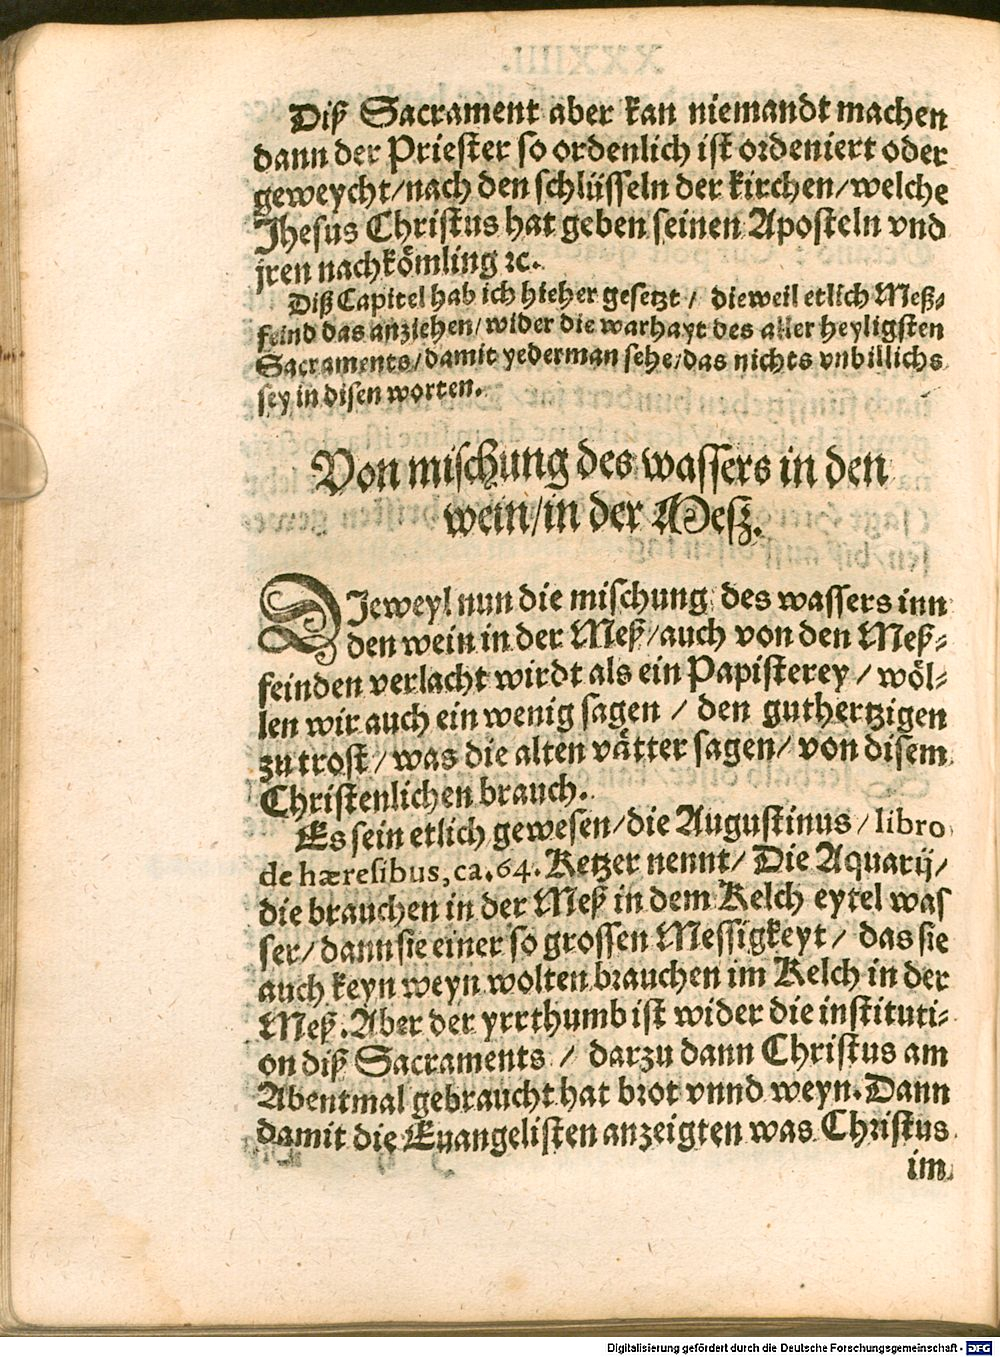 Diß Sacrament aber kan niemandt machen
dann der Priester so ordenlich ist ordeniert oder
geweycht/nach den schlüsseln der kirchen/welche
Jhesus Christus hat geben seinen Aposteln vnd
jren nachkömling ꝛc.
Diß Capitel hab ich hieher gesetzt / dieweil etlich Meß⸗
feind das anziehen/wider die warhayt des aller heyligsten
Sacraments/damit yederman sehe/das nichts vnbillichs
sey in disen worten.
Von mischung des wassers in den
wein/in der Mesz.
DJeweyl nun die mischung des wassers inn
den wein in der Meß/auch von den Meß⸗
feinden verlacht wirdt als ein Papisterey / wöl⸗
len wir auch ein wenig sagen / den guthertzigen
zu trost/was die alten vätter sagen/ von disem
Christenlichen brauch.
Es sein etlich gewesen/die Augustinus / libro
de hæresibus, ca. 64. Ketzer nennt/ Die Aquarij/
die brauchen in der Meß in dem Kelch eytel was
ser/ dann sie einer so grossen Messigkeyt / das sie
auch keyn weyn wolten brauchen im Kelch in der
Meß. Aber der yrrthumb ist wider die instituti⸗
on diß Sacraments / darzu dann Christus am
Abentmal gebraucht hat brot vnnd weyn. Dann
damit die Euangelisten anzeigten was Christus
im
Digitalisierung gefördert durch die Deutsche Forschungsgemeinschaft - DFG